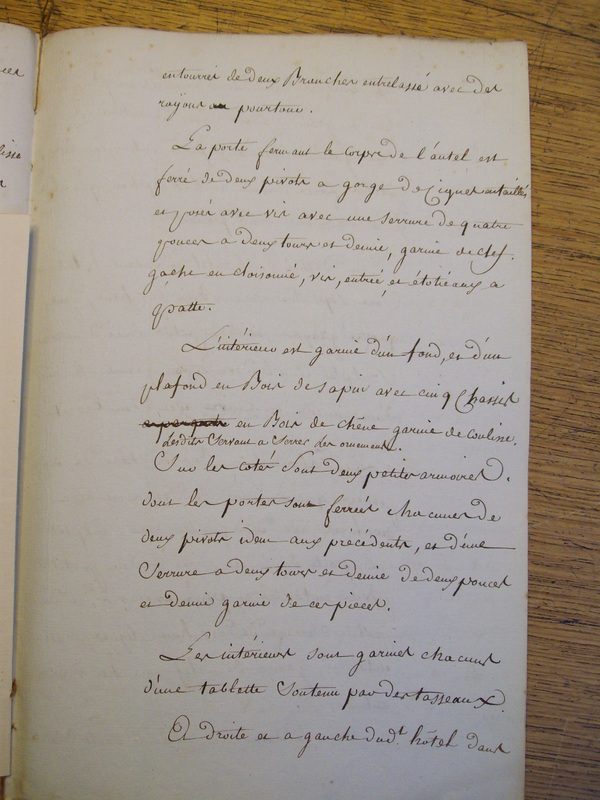 entourrés de deux Branches entrelassé avec des
rayons au pourtour.
La porte fermant le corps de l'autel est
ferré de deux pivots a gorge de Cignes entaillés
et posés avec vis avec une serrure de quatre
pouces a deux tours et demie, garnie de clef.
gache en cloisonné, vis, entrée, et étotieaux a
patte.
L'intérieur est garnie d'un fond, et d'un
plafond en Bois de sapin avec cinq Chassis
en Bois de chêne garnie de coulisse.
lesdits Servant a Serrer des ornements.
Sur les cotés Sont deux petites armoires.
dont les portes sont ferrées chacunes de
deux pivots idem aux précédents, et d'une
Serrure a deux tours et demie de deux pouces
et demie garnie de ces pieces.
Les intérieurs sont garnies chacuns
d'une tablette Soutenu par des tasseaux.
A droite et a gauche dud.t hôtel dans